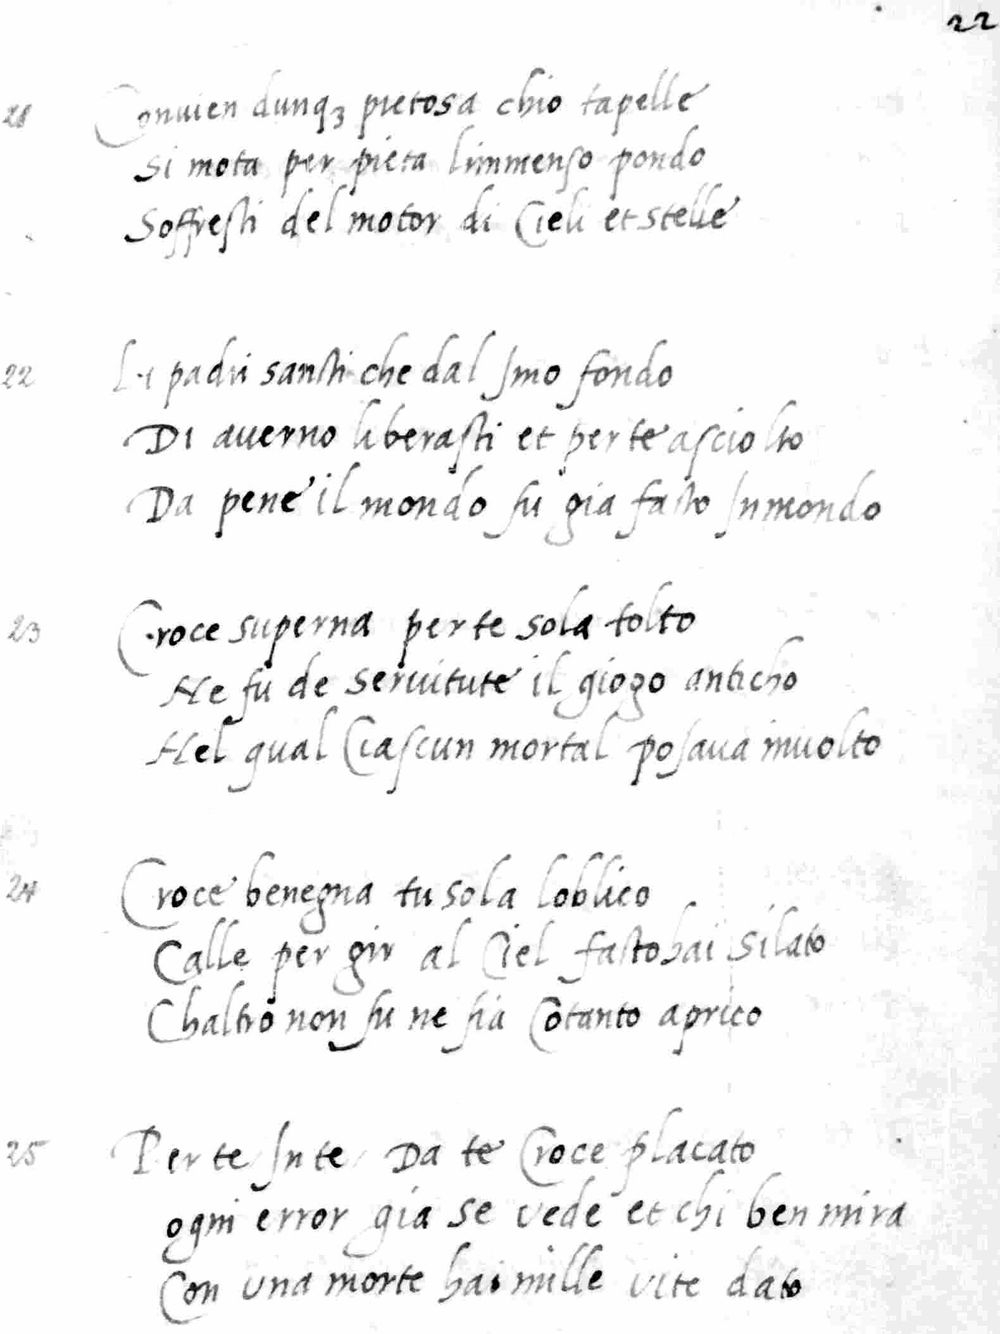 22
21 Conuien dunqꝫ pietosa chio tapelle
Si mota per pieta limmenso pondo
Soffresti del motor di Cieli et stelle
22 Li padri sancti che dal Imo fondo
Di auerno liberasti et per te asciolto
Da pene il mondo fu gia facto Inmondo
23 Croce superna per te sola tolto
Ne fu de seruitute il giogo anticho
Nel qual Ciascun mortal posaua inuolto
24 Croce benegna tu sola loblico
Calle per gir al Ciel facto hai silato
Chaltro non fu ne fia Cōtanto aprico
25 Per te In te Da te Croce placato
ogni error gia se vede et chi ben mira
Con una morte hai mille vite dato